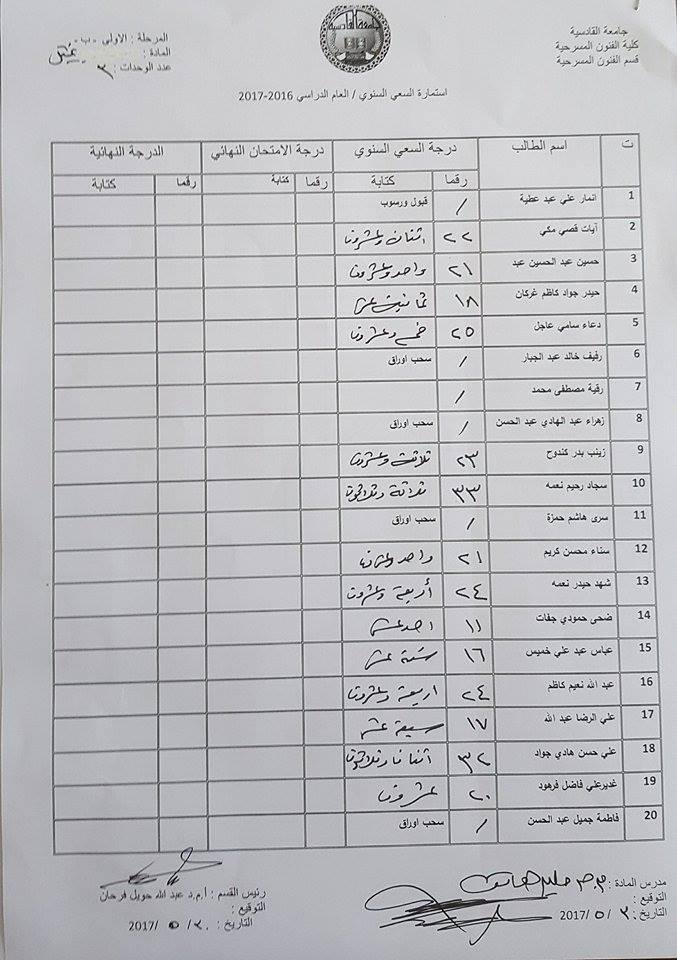 جامعة القادسية
كلية الفنون المسرحية
قسم الفنون المسرحية
جامعة القادسية
المرحلة : الاولى -ب-
المادة : تمثيل
عدد الوحدات : ٣
استمارة السعي السنوي / العام الدراسي 2016-2017
ت اسم الطالب درجة السعي السنوي درجة الامتحان النهائي الدرجة النهائية
رقما كتابة رقما كتابة رقما كتابة
1 انمار علي عبد عطية / قبول ورسوب
2 آيات قصي مكي ٢٢ اثنان وعشرون
3 حسين عبد الحسين عبد ٢١ واحد وعشرون
4 حيدر جواد كاظم غركان ١٨ ثمانية عشر
5 دعاء سامي عاجل ٢٥ خمس وعشرون
6 رفيف خالد عبد الجبار / سحب اوراق
7 رقية مصطفى محمد /
8 زهراء عبد الهادي عبد الحسن / سحب اوراق
9 زينب بدر كندوح ٢٣ ثلاثة وعشرون
10 سجاد رحيم نعمه ٣٣ ثلاثة وثلاثون
11 سرى هاشم حمزة / سحب اوراق
12 سناء محسن كريم ٢١ واحد وعشرون
13 شهد حيدر نعمه ٢٤ أربعة وعشرون
14 ضحى حمودي جفات ١١ احد عشر
15 عباس عبد علي خميس ١٦ ستة عشر
16 عبد الله نعيم كاظم ٢٤ اربعة وعشرون
17 علي الرضا عبد الله ١٧ سبعة عشر
18 علي حسن هادي جواد ٣٢ اثنان وثلاثون
19 غدير علي فاضل فرهود ٢٠ عشرون
20 فاطمة جميل عبد الحسن / سحب اوراق
مدرس المادة :
التوقيع :
التاريخ : ٣ / ٥ / 2017
رئيس القسم : أ.م.د عبد الله حويل فرحان
التوقيع :
التاريخ : ٣٠ / ٥ / 2017